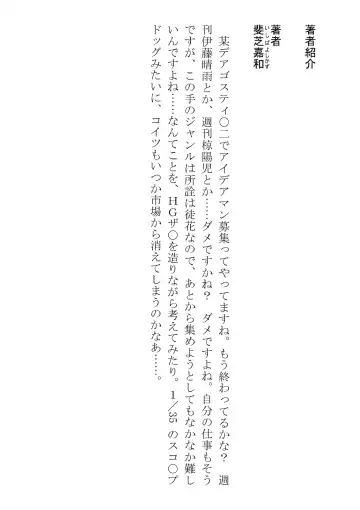 著者紹介
著者
斐芝嘉和
いしばよしかず
某デアゴスティ○ニでアイデアマン募集ってやってますね。もう終わってるかな？　週
刊伊藤晴雨とか、週刊椋陽児とか……ダメですかね？　ダメですよね。自分の仕事もそう
ですが、この手のジャンルは所詮は徒花なので、あとから集めようとしてもなかなか難し
いんですよね……なんてことを、ＨＧザ○を造りながら考えてみたり。１／35のスコ○プ
ドッグみたいに、コイツもいつか市場から消えてしまうのかなあ……。